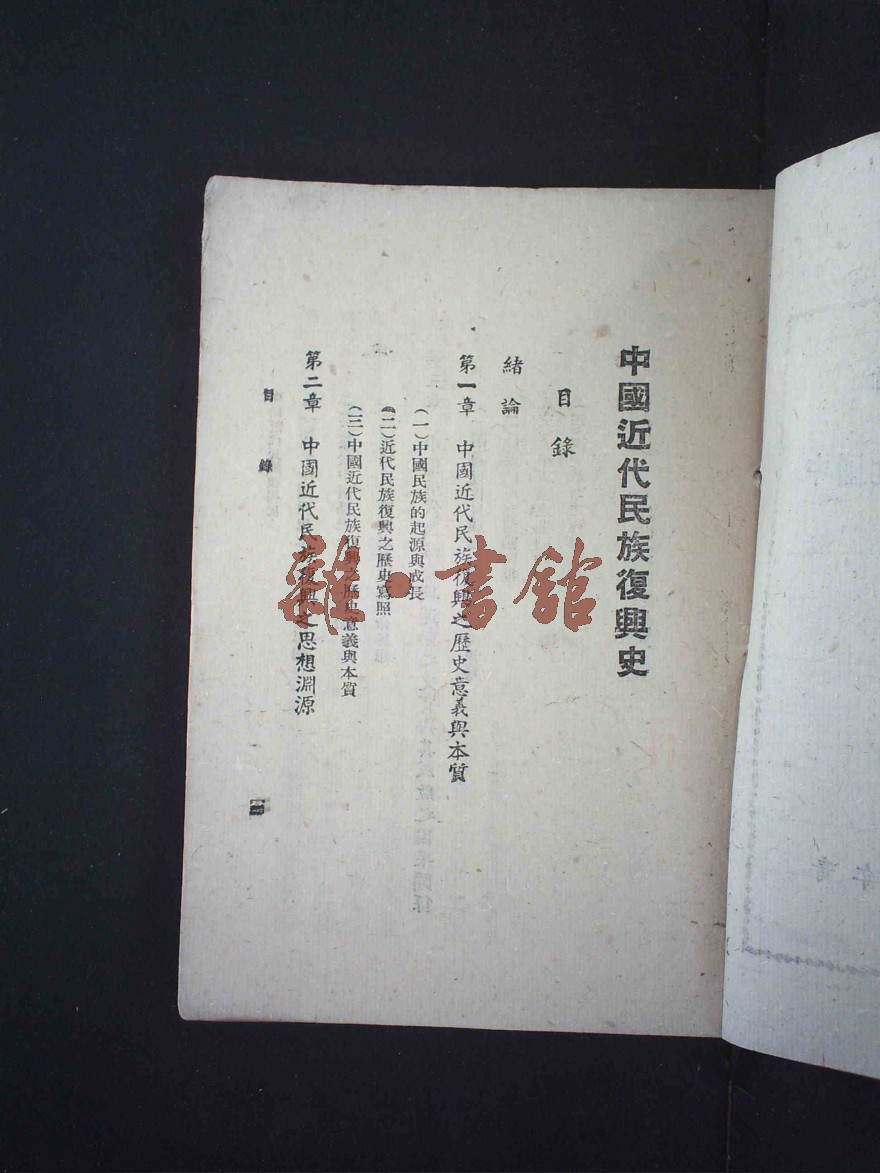 中國近代民族復興史
目錄
緒論
第一章 中國近代民族復興之歷史意義與本質
(一)中國民族的起源與成長
(二)近代民族復興之歷史寫照
(三)中國近代民族復興之歷史意義與本質
第二章 中國近代民族復興之思想淵源
目錄
雜·書館